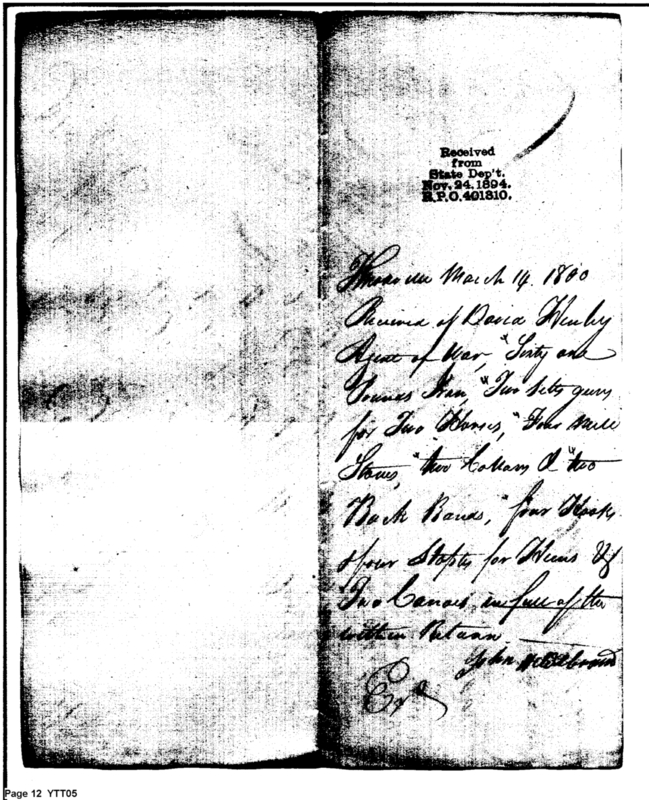 Received
from
State Dep't.
Nov. 24. 1894.
R.P.O. 401810.
Knoxville March 14. 1800
Received of David Henley
Agent of War, "Sixty one
Pounds Iron, "Two setts gears
for Two Horses, "Four Mill
Stones, "two Collars & "two
Back Bands, "four Hooks
& four Staples for Hems &
Two Canoes, in full of the
within Return
John
Exd
Page 12 YTT05